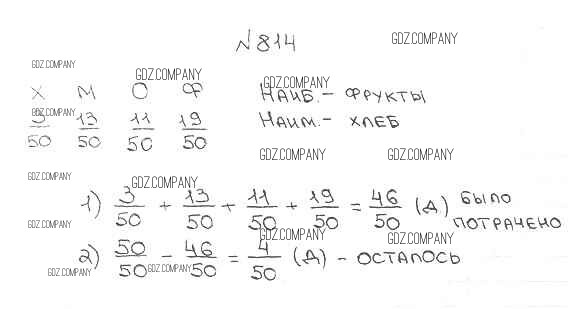 №814
GDZ.COMPANY
GDZ.COMPANY
GDZ.COMPANY
GDZ.COMPANY
Х М О Ф НАИБ. - ФРУКТЫ
GDZ.COMPANY
3/50 13/50 11/50 19/50 НАИМ. - ХЛЕБ
GDZ.COMPANY GDZ.COMPANY
GDZ.COMPANY GDZ.COMPANY
1) 3/50 + 13/50 + 11/50 + 19/50 = 46/50 (Д) БЫЛО
ПОТРАЧЕНО
GDZ.COMPANY GDZ.COMPANY GDZ.COMPANY
2) 50/50 - 46/50 = 4/50 (Д) - ОСТАЛОСЬ
GDZ.COMPANY GDZ.COMPANY